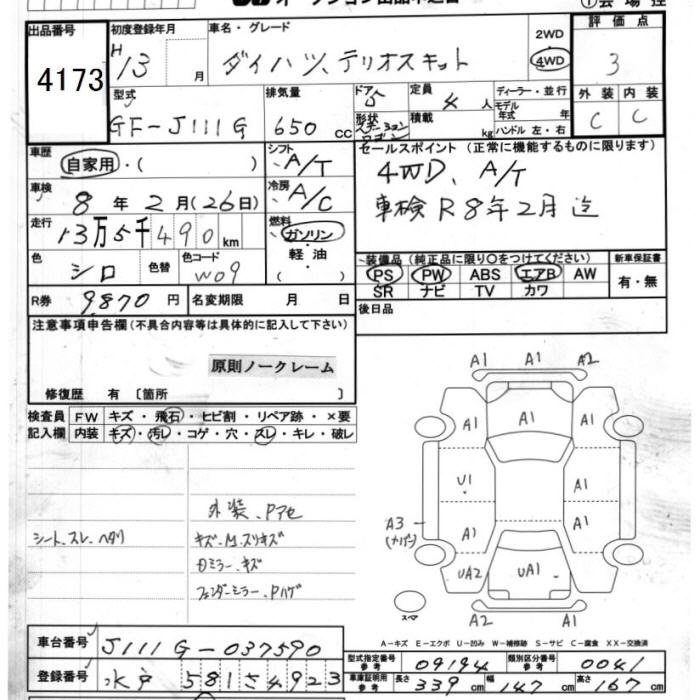 オークション出品申込書
①会場控
出品番号
4173
初度登録年月
H13 月
車名・グレード
ダイハツ、テリオスキット
2WD
4WD
評価点
3
型式
GF-J111G
排気量
650 cc
ドア
5
形状
定員
4 人
積載 kg
ディーラー・並行
モデル年式 年
ハンドル 左・右
外装 内装
C C
車歴
自家用・( )
シフト
A/T
セールスポイント (正常に機能するものに限ります)
4WD、A/T
車検R8年2月迄
車検
8年2月(26日)
冷房
A/C
走行
13万5千490km
燃料
ガソリン
軽油
( )
色
シロ
色替
色コード
W09
装備品 (純正品に限り〇をつけてください)
PS PW ABS エアB AW
SR ナビ TV カワ
新車保証書
有・無
R券 9,870円
名変期限 月 日
後日品
注意事項申告欄(不具合内容等は具体的に記入して下さい)
原則ノークレーム
修復歴 有 〔箇所 〕
検査員記入欄
FW キズ・飛石・ヒビ割・リペア跡・×要
内装 キズ・汚レ・コゲ・穴・スレ・キレ・破レ
外装、Pアセ
シート、スレ、ヘタリ
キズ、M、スリキズ
Dミラー、キズ
フェンダーミラー、Pハゲ
A1 A1 A2
A1 A1 A1
U1 A1
A3
(ナンバー)
A1 A1
UA2 UA1 A1
A2 A1
スペア
A-キズ E-エクボ U-凹み W-補修跡 S-サビ C-腐食 XX-交換済
車台番号
J111G-037590
型式指定番号 参考
09194
類別区分番号 参考
0041
登録番号
水戸 581 さ 4923
車庫証明用 参考
長さ 339 cm 幅 147 cm 高さ 167 cm